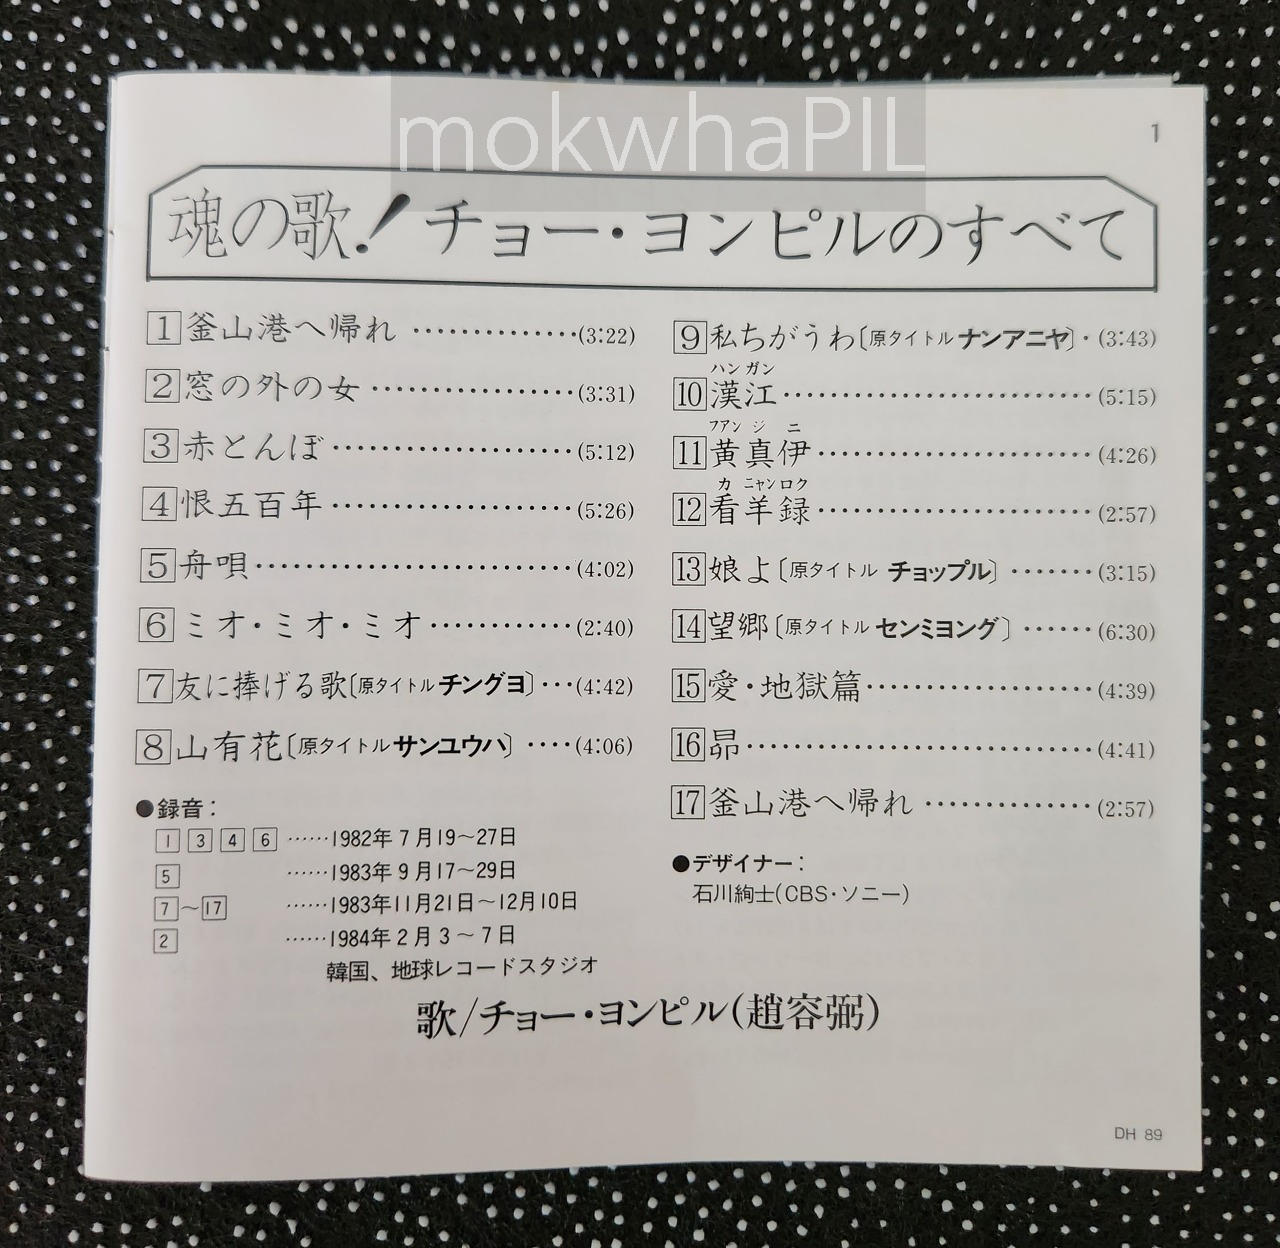 mokwhaPIL
1
魂の歌!チョー・ヨンピルのすべて
1 釜山港へ帰れ ……………(3:22)
2 窓の外の女 ………………(3:31)
3 赤とんぼ …………………(5:12)
4 恨五百年 …………………(5:26)
5 舟唄 ………………………(4:02)
6 ミオ・ミオ・ミオ …………(2:40)
7 友に捧げる歌〔原タイトル チングヨ〕…(4:42)
8 山有花〔原タイトル サンユウハ〕 ‥‥(4:06)
9 私ちがうわ〔原タイトル ナンアニヤ〕・(3:43)
ハン ガン
10 漢江 ………………………(5:15)
フアン ジ ニ
11 黄真伊 ……………………(4:26)
カ ニャンロク
12 看羊録 ……………………(2:57)
13 娘よ〔原タイトル チョップル〕 ……(3:15)
14 望郷〔原タイトル センミヨング〕 ……(6:30)
15 愛・地獄篇 …………………(4:39)
16 昴 …………………………(4:41)
17 釜山港へ帰れ ……………(2:57)
●録音:
1 3 4 6 ……1982年7月19〜27日
5 ……1983年9月17〜29日
7〜17 ……1983年11月21日〜12月10日
2 ……1984年2月3〜7日
韓国、地球レコードスタジオ
●デザイナー:
石川絢士(CBS・ソニー)
歌/チョー・ヨンピル(趙容弼)
DH 89